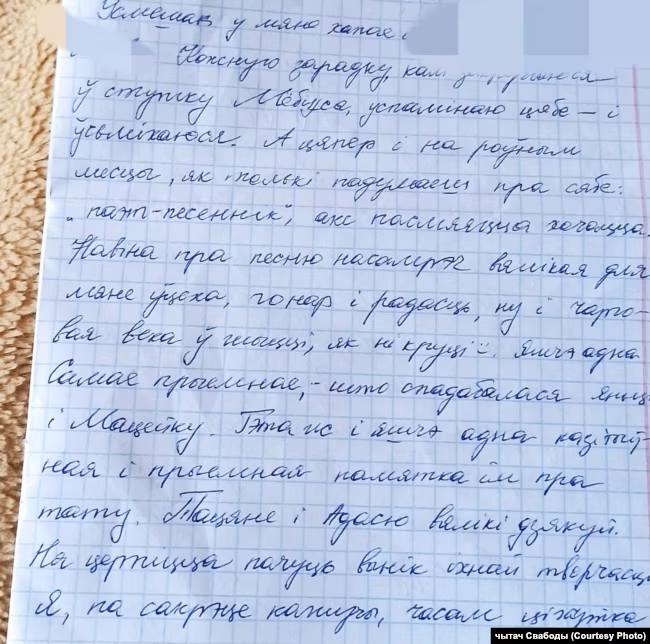 Усмешак у мяне хапае
Кожную зарадку, калі
ў стужку Мёбіуса, успамінаю цябе – і
ўсьміхаюся. А цяпер і на роўным
месцы, як толькі падумаеш пра сябе:
"паэт-песеннік", аж пасмяяцца хочацца.
Навіна пра песню насамрэч вялікая для
мяне ўцеха, гонар і радасць, ну і чарго-
вая веха ў жыцці, як ні круці :-. Яшчэ адна
Самае прыемнае, – што спадабалася Яньц
і Мацейку. Гэта ж і яшчэ адна пазітыў-
ная і прыемная памятка ім пра
тату. Тацяне і Адасю вялікі дзякуй.
Не церпіцца пачуць вынік іхнай творчасц
Я, па сакрэце кажучы, часам
чытач Свабоды (Courtesy Photo)